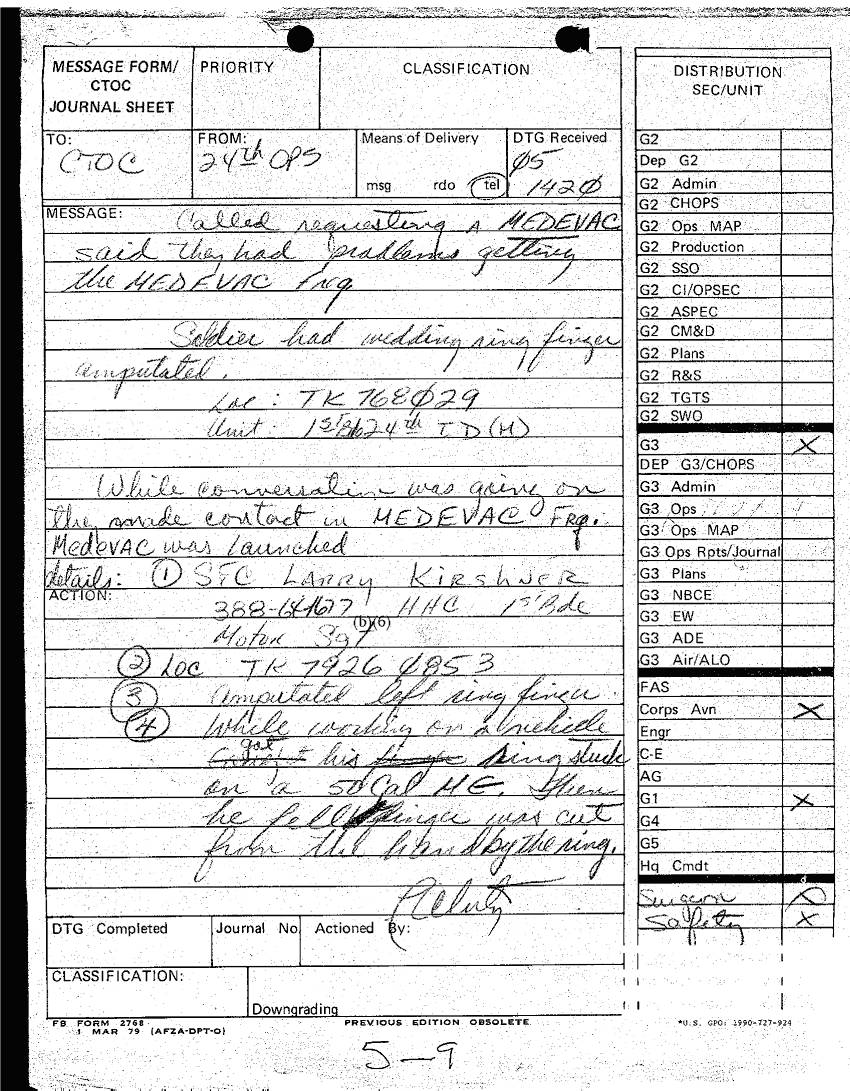 MESSAGE FORM/
CTOC
JOURNAL SHEET
PRIORITY
CLASSIFICATION
TO:
CTOC
FROM:
24th OPS
Means of Delivery
msg rdo tel
DTG Received
05
1420
MESSAGE: Called requesting a MEDEVAC
said they had problems getting
the MEDEVAC Freq
Soldier had wedding ring finger
amputated.
Loc : TK 768029
Unit: 1st Bde 24th ID (M)
While conversation was going on
they made contact in MEDEVAC Frq.
MedEVAC was launched
details: ① SFC LARRY KIRSHNER
ACTION:
HHC 1st Bde
(b)(6)
Motor Sgt
② Loc TK 7926 0853
③ amputated left ring finger.
④ While working on a vehicle
got his ring stuck
on a 50 Cal MG. Then
he fell finger was cut
from the hand by the ring.
DTG Completed
Journal No.
Actioned By:
CLASSIFICATION:
Downgrading
FB FORM 2768
1 MAR 79 (AFZA-DPT-O)
PREVIOUS EDITION OBSOLETE
5-9
DISTRIBUTION
SEC/UNIT
G2
Dep G2
G2 Admin
G2 CHOPS
G2 Ops MAP
G2 Production
G2 SSO
G2 CI/OPSEC
G2 ASPEC
G2 CM&D
G2 Plans
G2 R&S
G2 TGTS
G2 SWO
G3 X
DEP G3/CHOPS
G3 Admin
G3 Ops
G3 Ops MAP
G3 Ops Rpts/Journal
G3 Plans
G3 NBCE
G3 EW
G3 ADE
G3 Air/ALO
FAS
Corps Avn X
Engr
C-E
AG
G1 X
G4
G5
Hq Cmdt
Surgeon X
Safety X
*U.S. GPO: 1990-727-924